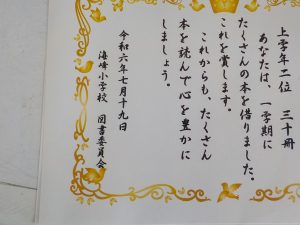 上学年二位 三十冊
あなたは、一学期に
たくさんの本を借りました。
これを賞します。
これからも、たくさん
本を読んで心を豊かに
しましょう。
令和六年七月十九日
海崎小学校 図書委員会